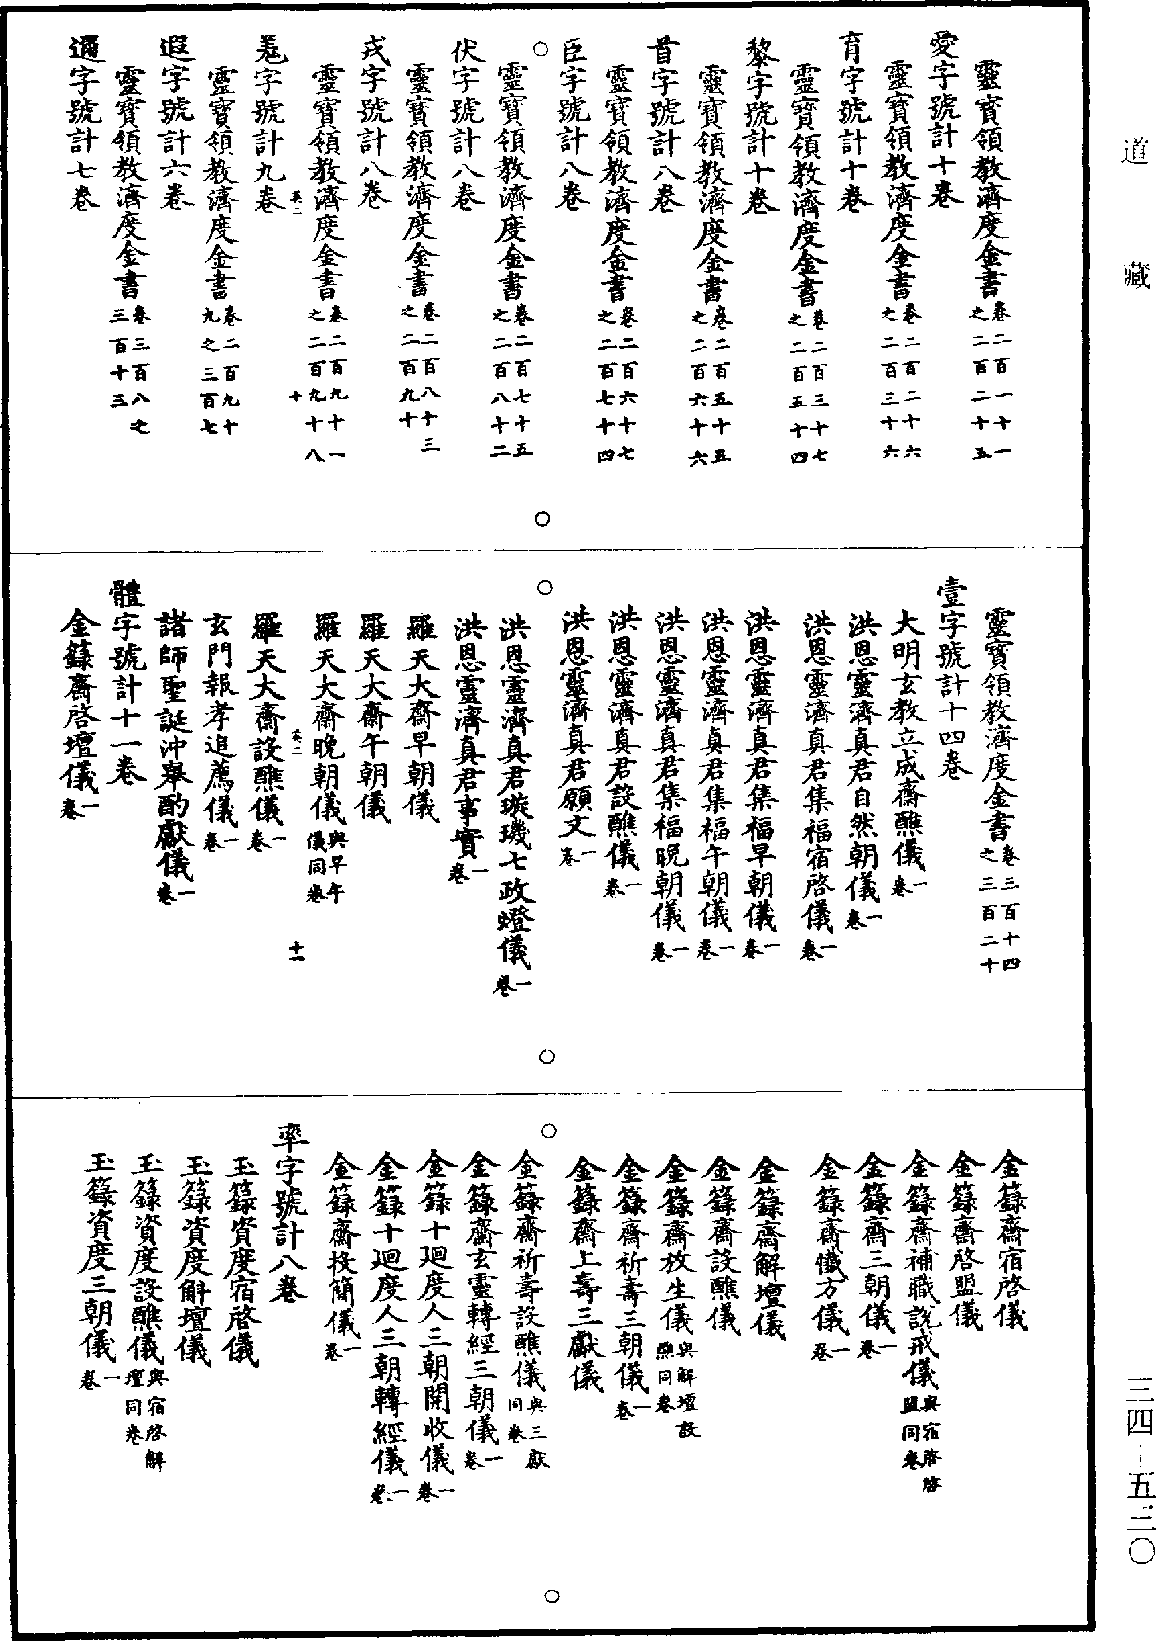 道藏
靈寶領教濟度金書卷二百一十一之二百二十五
愛字號計十卷
靈寶領教濟度金書卷二百二十六之二百三十六
育字號計十卷
靈寶領教濟度金書卷二百三十七之二百五十四
黎字號計十卷
靈寶領教濟度金書卷二百五十五之二百六十六
首字號計八卷
靈寶領教濟度金書卷二百六十七之二百七十四
臣字號計八卷
靈寶領教濟度金書卷二百七十五之二百八十二
伏字號計八卷
靈寶領教濟度金書卷二百八十三之二百九十
戎字號計八卷
靈寶領教濟度金書卷二百九十一之二百九十八
英二 十
羌字號計九卷
靈寶領教濟度金書卷二百九十九之三百七
遐字號計六卷
靈寶領教濟度金書卷三百八之三百十三
邇字號計七卷
靈寶領教濟度金書卷三百十四之三百二十
壹字號計十四卷
大明玄教立成齋醮儀一卷
洪恩靈濟真君自然朝儀一卷
洪恩靈濟真君集福宿啓儀一卷
洪恩靈濟真君集福早朝儀一卷
洪恩靈濟真君集福午朝儀一卷
洪恩靈濟真君集福晚朝儀一卷
洪恩靈濟真君設醮儀一卷
洪恩靈濟真君願文一卷
洪恩靈濟真君璇璣七政燈儀一卷
洪恩靈濟真君事實一卷
羅天大齋早朝儀
羅天大齋午朝儀
羅天大齋晚朝儀與早午儀同卷
英二 十一
羅天大齋設醮儀一卷
玄門報孝追薦儀一卷
諸師聖誕沖舉酌獻儀一卷
體字號計十一卷
金籙齋啓壇儀一卷
金籙齋宿啓儀
金籙齋啓盟儀
金籙齋補職說戒儀與宿啓啓盟同卷
金籙齋三朝儀一卷
金籙齋懺方儀一卷
金籙齋解壇儀
金籙齋設醮儀
金籙齋放生儀與解壇設醮同卷
金籙齋祈壽三朝儀一卷
金籙齋上壽三獻儀
金籙齋祈壽設醮儀與三獻同卷
金籙齋玄靈轉經三朝儀一卷
金籙十迴度人三朝開收儀一卷
金籙十迴度人三朝轉經儀一卷
金籙齋投簡儀一卷
率字號計八卷
玉籙資度宿啓儀
玉籙資度解壇儀
玉籙資度設醮儀與宿啓解壇同卷
玉籙資度三朝儀一卷
三四－五三〇